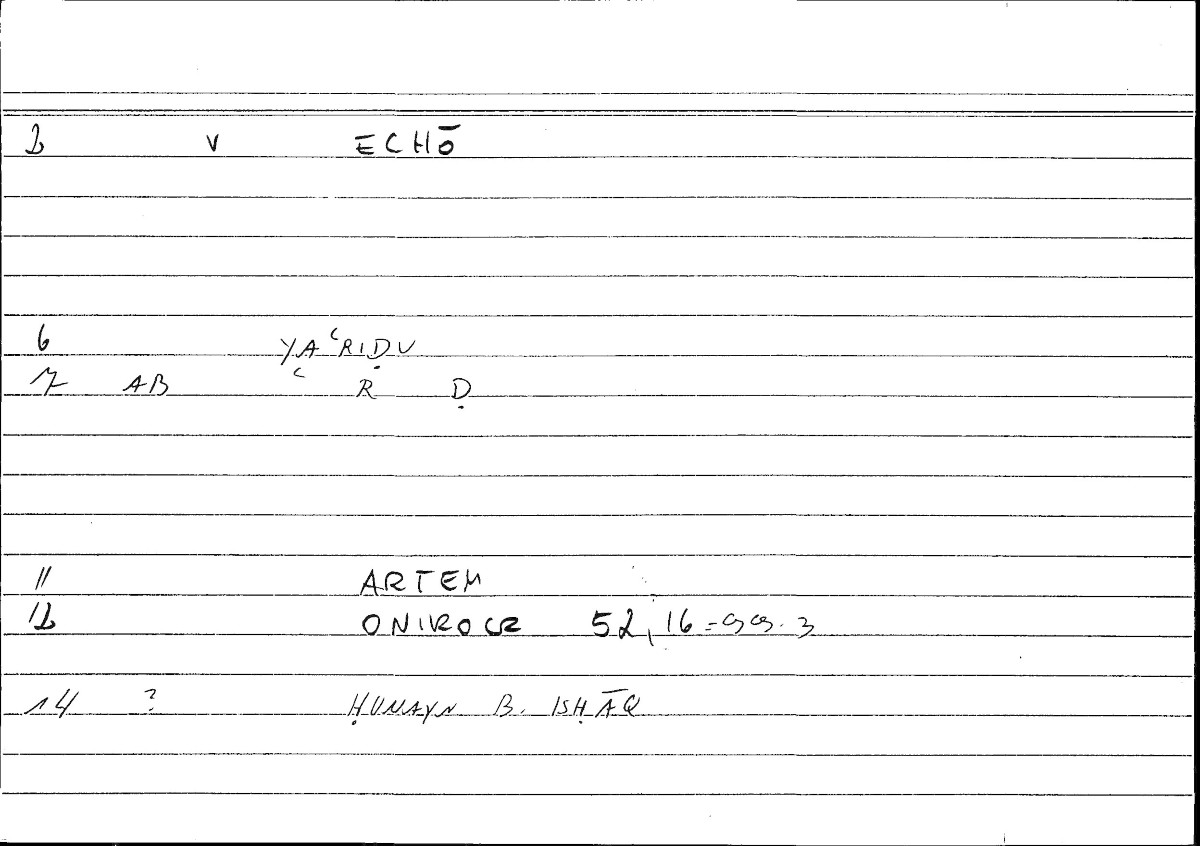 2 V ECHŌ
6 YAʿRIḌU
7 AB ʿ R Ḍ
11 ARTEM
12 ONIROCR 52,16 =
14 ? ḤUNAYN B. ISḤĀQ